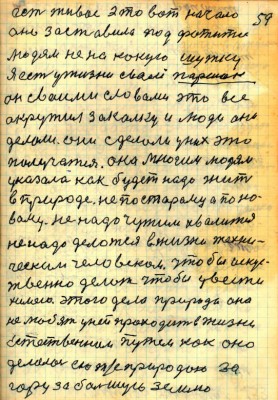 59
ест живое это вот начало
она заставила под
людям не на какую шутку
я ест у жизни своей
он своими словами это всё
окрутил и люди это
делали. они сделали у них это
получатся. она многим людям
указала как будет надо жит
в природе. не по старому а по но-
вому. не надо чужим хвалится
не надо делатся в жизни техни-
ческим человеком. чтобы искус-
твенно делат чтобы увести
этого дела природа она
не любят у ней проходит в жизни
естественным путем как оно
делалас ею природою за
гору за большую землю